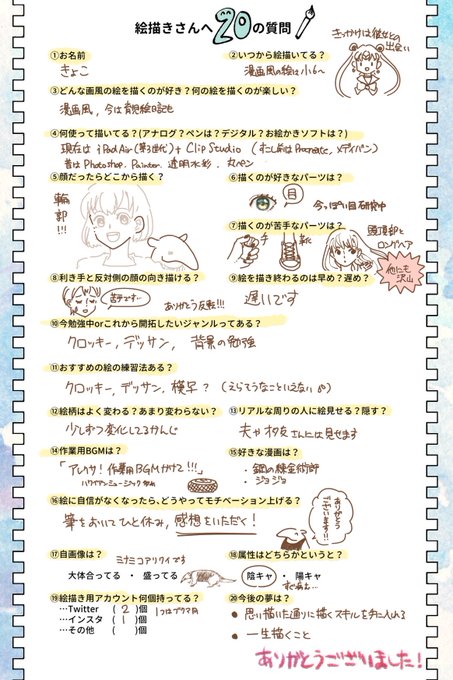 絵描きさんへ20の質問
①お名前
きょこ
②いつから絵描いてる?
漫画風の絵は小6〜
きっかけは彼女との
出会い
③どんな画風の絵を描くのが好き?何の絵を描くのが楽しい?
漫画風、今は育児絵日記も
④何使って描いてる?(アナログ?ペンは?デジタル?お絵かきソフトは?)
現在は iPad Air(第3世代)+ Clip Studio (すこし前はProcreate、メディバン)
昔はPhotoshop、Painter、透明水彩、丸ペン
⑤顔だったらどこから描く?
輪郭!!!
⑥描くのが好きなパーツは?
目
今っぽい目研究中
⑦描くのが苦手なパーツは?
手
靴
頭頂部と
ロングヘア
他にも
沢山
⑧利き手と反対側の顔の向き描ける?
苦手です…
ありがとう反転!!!
⑨絵を描き終わるのは早め?遅め?
遅いです
⑩今勉強中orこれから開拓したいジャンルってある?
クロッキー、デッサン、背景の勉強
⑪おすすめの絵の練習法ある?
クロッキー、デッサン、模写? (えらそうなこといえない)
⑫絵柄はよく変わる?あまり変わらない?
少しずつ変化してるかんじ
⑬リアルな周りの人に絵見せる?隠す?
夫やオタ友さんには見せます
⑭作業用BGMは?
「アレクサ!作業用BGMかけて!!!」
ハワイアンミュージック
⑮好きな漫画は?
・鋼の錬金術師
・ジョジョ
⑯絵に自信がなくなったら、どうやってモチベーション上げる?
筆をおいてひと休み、感想をいただく!
ありがとう
ございます!!!
⑰自画像は?
ミナミコアリクイです
大体合ってる ・ 盛ってる
⑱属性はどちらかというと?
陰キャ ・ 陽キャ
⑲絵描き用アカウント何個持ってる?
…Twitter ( 2 )個
1つはプラマ用
…インスタ ( 1 )個
…その他 ( )個
⑳今後の夢は?
● 思い描いた通りに描くスキルを手に入れる
● 一生描くこと
ありがとうございました!